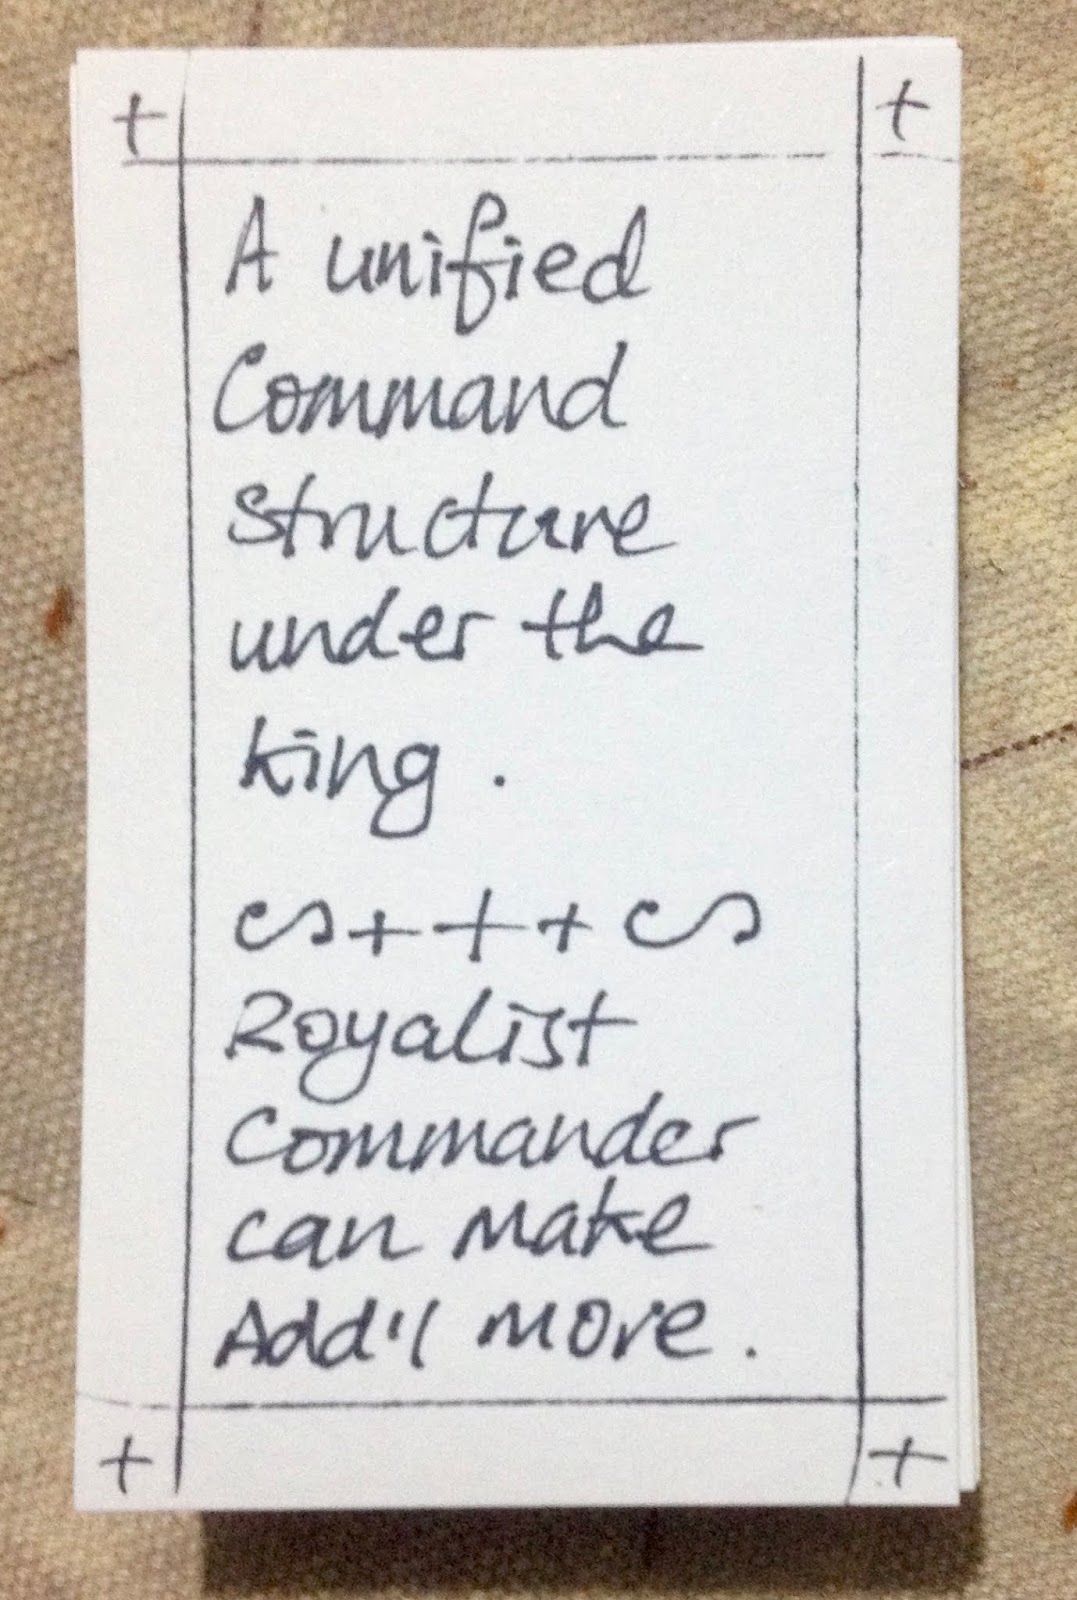 A unified
Command
structure
under the
king.
Royalist
Commander
can make
Add'l more.